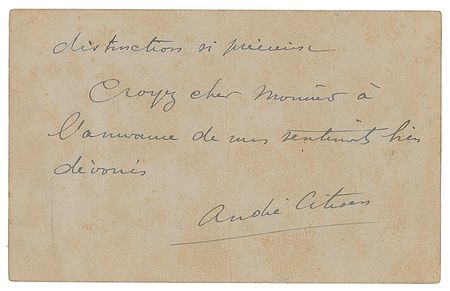 distinction si précieuse
Croyez cher Monsieur à
l'assurance de mes sentiments bien
dévoués
André Citroën